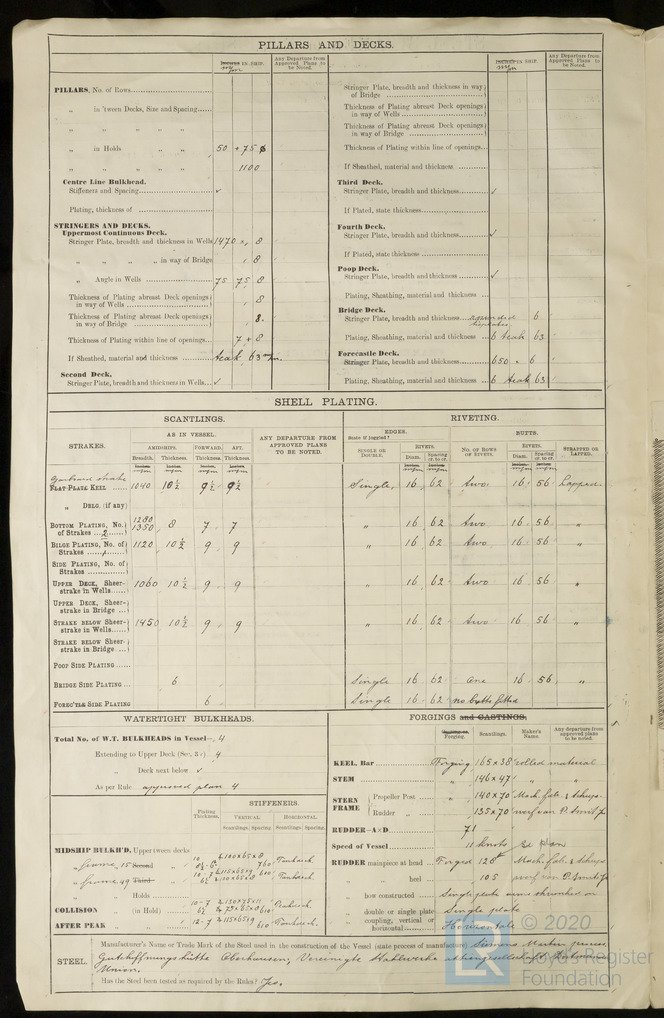 PILLARS AND DECKS.
INCHES IN SHIP.
Any Departure from Approved Plans to be Noted.
PILLARS, No. of Rows
„ in 'tween Decks, Size and Spacing
„ „ „ „
„ in Holds „ „ 50 + 75 ø
„ „ „ „ 1100
Centre Line Bulkhead.
Stiffeners and Spacing ✓
Plating, thickness of
STRINGERS AND DECKS.
Uppermost Continuous Deck.
Stringer Plate, breadth and thickness in Wells 1470 x 8
„ „ „ „ in way of Bridge „ 8
„ Angle in Wells 75 75 8
Thickness of Plating abreast Deck openings in way of Wells „ 8
Thickness of Plating abreast Deck openings in way of Bridge „ 8.
Thickness of Plating within line of openings 7 + 8
If Sheathed, material and thickness teak 63 m/m.
Second Deck.
Stringer Plate, breadth and thickness in Wells ✓
INCHES IN SHIP.
Any Departure from Approved Plans to be Noted.
Stringer Plate, breadth and thickness in way of Bridge
Thickness of Plating abreast Deck openings in way of Wells
Thickness of Plating abreast Deck openings in way of Bridge
Thickness of Plating within line of openings
If Sheathed, material and thickness
Third Deck.
Stringer Plate, breadth and thickness ✓
If Plated, state thickness
Fourth Deck.
Stringer Plate, breadth and thickness ✓
If Plated, state thickness
Poop Deck.
Stringer Plate, breadth and thickness ✓
Plating, Sheathing, material and thickness
Bridge Deck.
Stringer Plate, breadth and thickness 6
Plating, Sheathing, material and thickness 6 teak 63
Forecastle Deck.
Stringer Plate, breadth and thickness 650 x 6
Plating, Sheathing, material and thickness 6 teak 63
SHELL PLATING.
SCANTLINGS.
RIVETING.
STRAKES.
AS IN VESSEL.
AMIDSHIPS. FORWARD. AFT.
Breadth. Thickness. Thickness. Thickness.
ANY DEPARTURE FROM APPROVED PLANS TO BE NOTED.
EDGES.
State if joggled?
SINGLE OR DOUBLE.
RIVETS.
Diam. Spacing cr. to cr.
BUTTS.
No. OF ROWS OF RIVETS.
RIVETS.
Diam. Spacing cr. to cr.
STRAPPED OR LAPPED.
Garboard strake
FLAT PLATE KEEL 1040 10½ 9½ 9½ Single 16 62 two 16 56 Lapped
„ DBLG. (if any)
BOTTOM PLATING, No. of Strakes 2 1280 1350 8 7 7 „ 16 62 two 16 56 „
BILGE PLATING, No. of Strakes 1 1120 10½ 9 9 „ 16 62 two 16 56 „
SIDE PLATING, No. of Strakes
UPPER DECK, Sheerstrake in Wells 1060 10½ 9 9 „ 16 62 two 16 56 „
UPPER DECK, Sheerstrake in Bridge
STRAKE BELOW Sheerstrake in Wells 1450 10½ 9 9 „ 16 62 two 16 56 „
STRAKE BELOW Sheerstrake in Bridge
POOP SIDE PLATING
BRIDGE SIDE PLATING 6 Single 16 62 one 16 56 „
FORECTLE SIDE PLATING 6 Single 16 62 no butts fitted
WATERTIGHT BULKHEADS.
Total No. of W.T. BULKHEADS in Vessel 4
Extending to Upper Deck (Sec. 3) 4
„ Deck next below ✓
As per Rule approved plan 4
Plating Thickness.
STIFFENERS.
VERTICAL HORIZONTAL
Scantlings. Spacing Scantlings. Spacing.
MIDSHIP BULKH'D, Upper tween decks
„ frame 15 Second „
„ frame 49 Third „
„ Holds
COLLISION „ (in Hold)
AFTER PEAK „ „
FORGINGS and CASTINGS.
Casting or Forging. Scantlings. Maker's Name. Any departure from approved plans to be noted.
KEEL, Bar Forging 165 x 38 rolled material
STEM „ 146 x 47 „ „
STERN FRAME Propeller Post „ 140 x 70 Mach. fab. & scheeps
Rudder „ „ 135 x 70 werf van P. Smit Jr
RUDDER—A×D 71
Speed of Vessel 11 knots
RUDDER mainpiece at head Forged 120 Mach. fab. & scheeps
„ „ heel 105 werf van P. Smit Jr
„ how constructed Single plate arms shrunk on
„ double or single plate Single plate
„ coupling, vertical or horizontal Horizontale
STEEL.
Manufacturer's Name or Trade Mark of the Steel used in the construction of the Vessel (state process of manufacture) Siemens Martin process
Gutehoffnungshütte Oberhausen, Vereinigte Stahlwerke aktiengesellschaft Dortmunder
Union.
Has the Steel been tested as required by the Rules? Yes.
© 2020
Lloyd's Register
Foundation